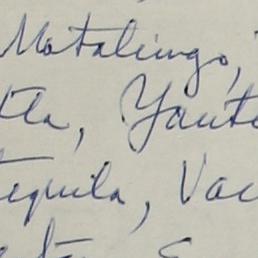 Matalingo,
tla, Yaute
Tequila, Vac